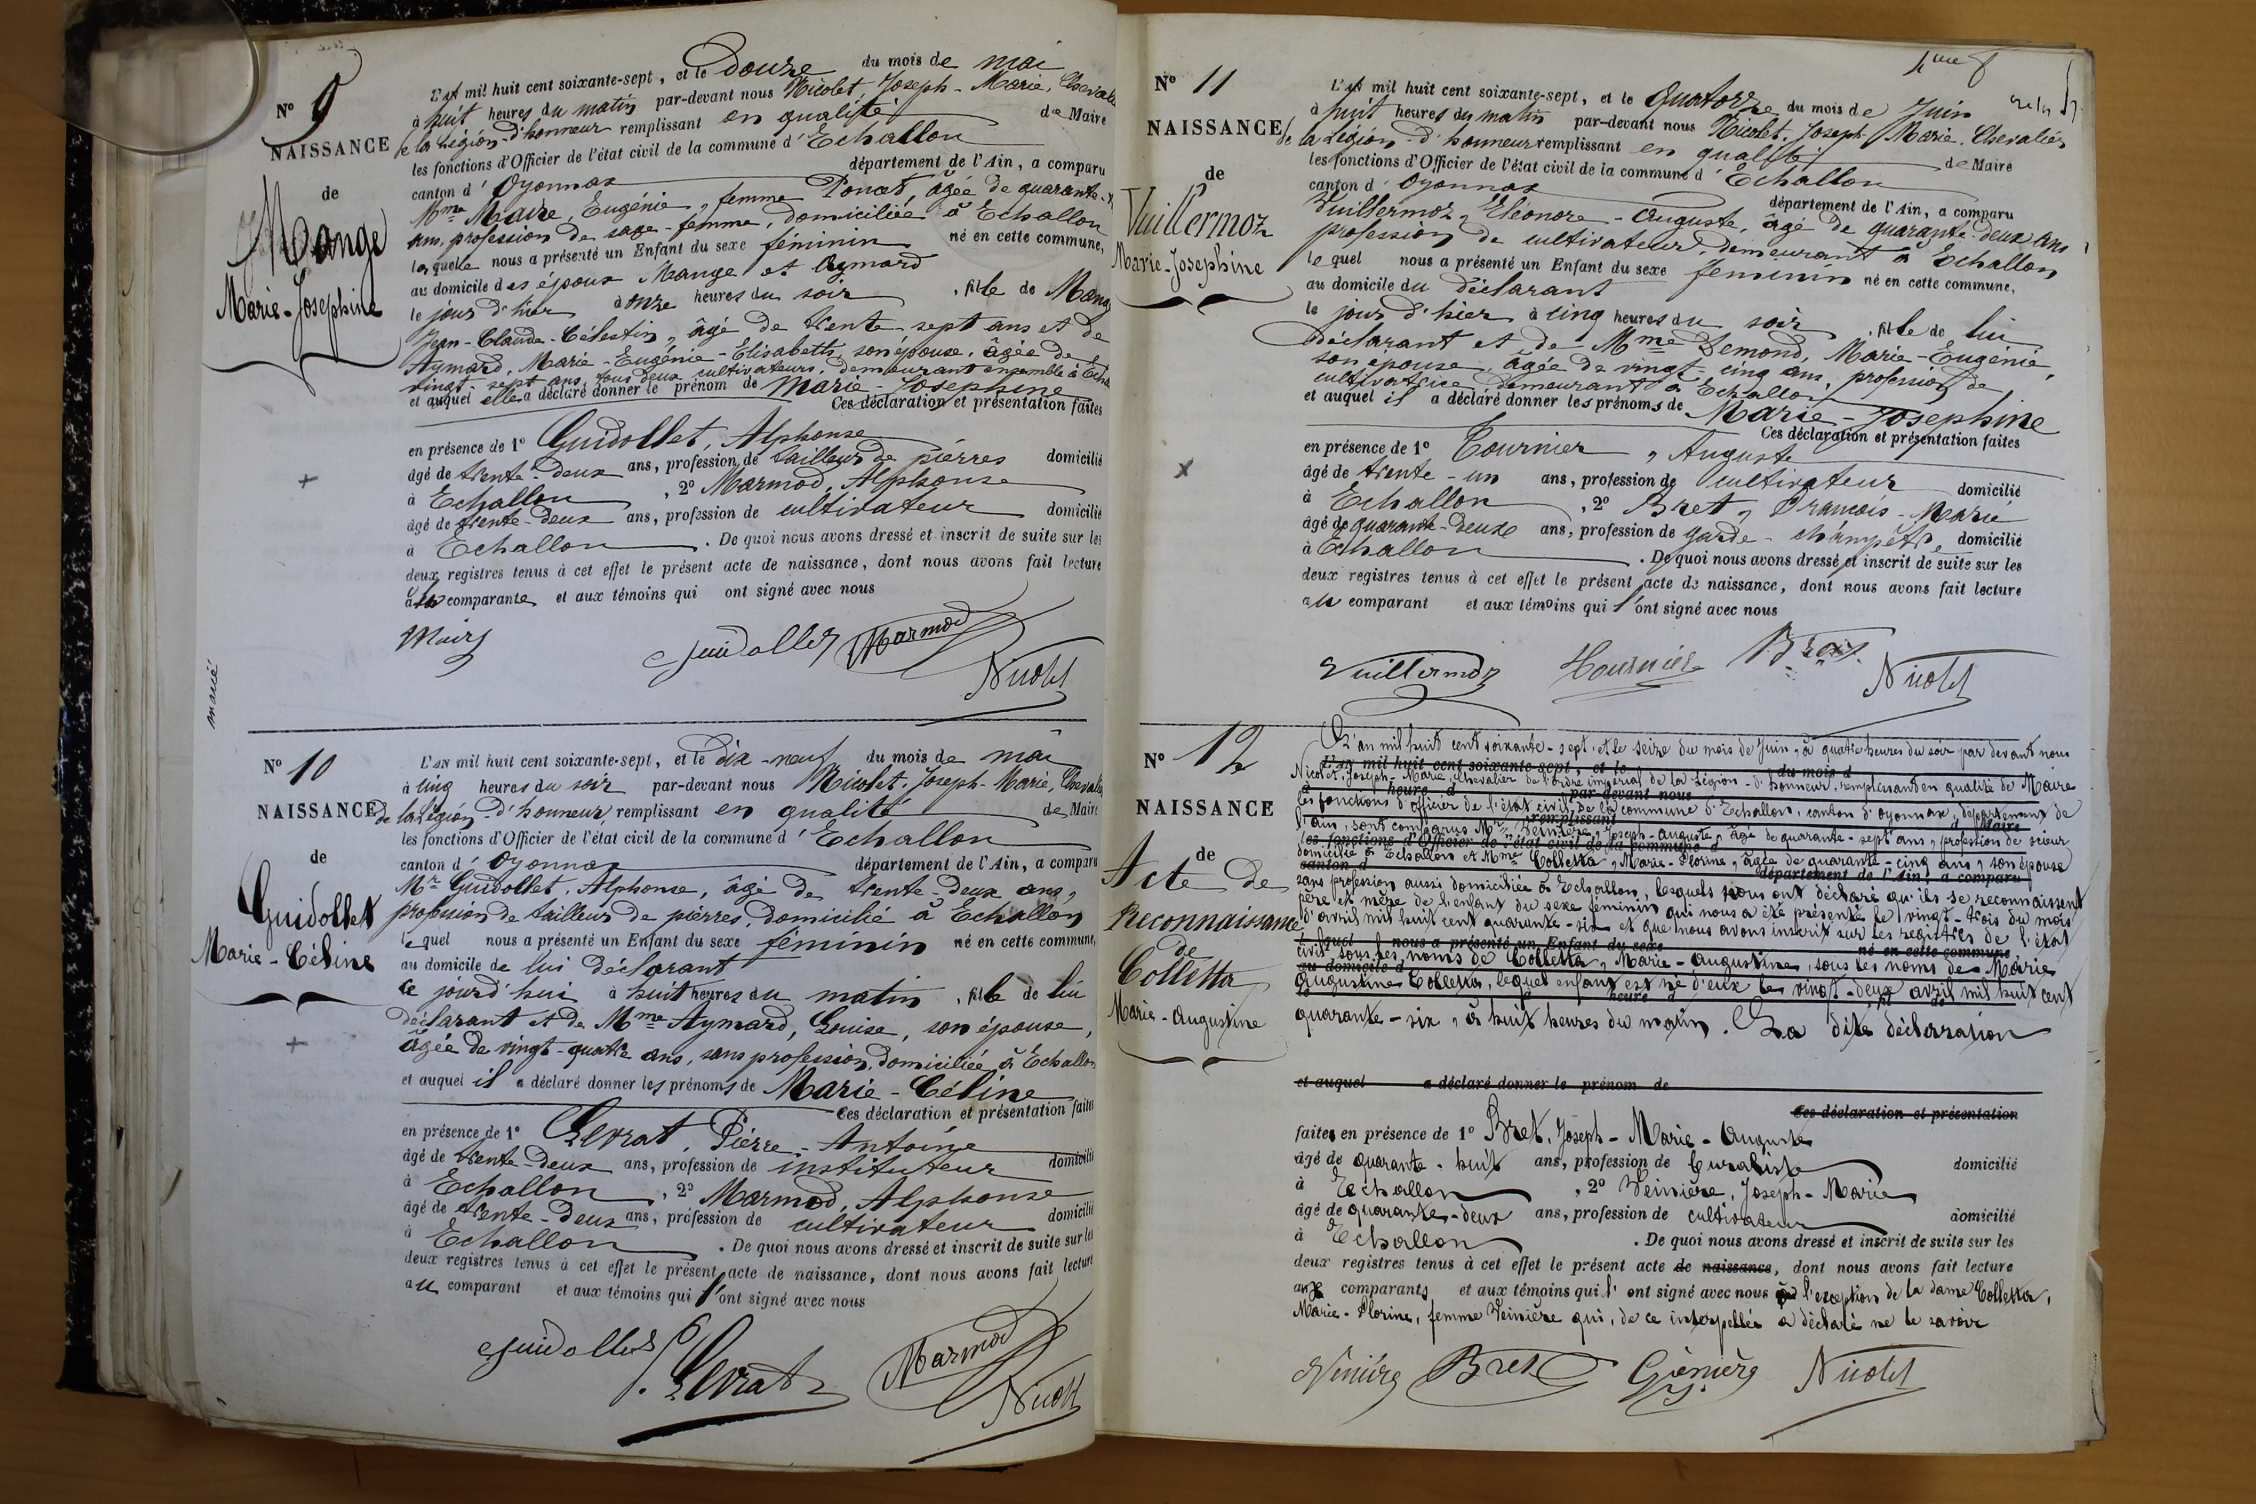 No 9
NAISSANCE
de
Mange
Marie-Josephine
L'an mil huit cent soixante-sept, et le Douze du mois de mai
à huit heures du matin par-devant nous Nicolet, Joseph-Marie, Cheval
de la Légion d'honneur remplissant en qualité de Maire
les fonctions d'Officier de l'état civil de la commune d'Echallon
canton d'Oyonnax département de l'Ain, a comparu
Mme Maire, Eugénie, femme Poncet, âgée de quarante
ans, profession de sage-femme, domiciliée à Echallon
laquelle nous a présenté un Enfant du sexe féminin né en cette commune,
au domicile des époux Mange et Aymard
le jour d'hier à onze heures du soir, fille de Mang
Jean-Claude-Célestin, âgé de trente-sept ans et de
Aymard, Marie-Eugénie-Elisabeth, son épouse, âgée de
vingt-sept ans, tous deux cultivateurs, demeurant ensemble à Echa
et auquel elle a déclaré donner le prénom de Marie-Josephine
Ces déclaration et présentation faites
en présence de 1o Guidollet, Alphonse
âgé de trente-deux ans, profession de tailleur de pierres domicilié
à Echallon, 2o Marmod, Alphonse
âgé de trente-deux ans, profession de cultivateur domicilié
à Echallon. De quoi nous avons dressé et inscrit de suite sur les
deux registres tenus à cet effet le présent acte de naissance, dont nous avons fait lecture
à la comparante et aux témoins qui ont signé avec nous
Guidollet Marmod
Nicolet
marié
No 10
NAISSANCE
de
Guidollet
Marie-Céline
L'an mil huit cent soixante-sept, et le dix-neuf du mois de mai
à cinq heures du soir par-devant nous Nicolet, Joseph-Marie, Chevalier
de la Légion-d'honneur, remplissant en qualité de Maire
les fonctions d'Officier de l'état civil de la commune d'Echallon
canton d'Oyonnax département de l'Ain, a comparu
Mr Guidollet, Alphonse, âgé de trente-deux ans,
profession de tailleur de pierres, domicilié à Echallon
lequel nous a présenté un Enfant du sexe féminin né en cette commune,
au domicile de lui déclarant
ce jourd'hui à huit heures du matin, fille de lui
déclarant et de Mme Aymard, Louise, son épouse,
âgée de vingt-quatre ans, sans profession, domiciliée à Echallon
et auquel il a déclaré donner les prénoms de Marie-Céline
Ces déclaration et présentation faites
en présence de 1o Levrat, Pierre-Antoine
âgé de trente-deux ans, profession de instituteur domicilié
à Echallon, 2o Marmod, Alphonse
âgé de trente-deux ans, profession de cultivateur domicilié
à Echallon. De quoi nous avons dressé et inscrit de suite sur les
deux registres tenus à cet effet le présent acte de naissance, dont nous avons fait lecture
au comparant et aux témoins qui l'ont signé avec nous
Guidollet Levrat Marmod
Nicolet
No 11
NAISSANCE
de
Vuillermoz
Marie-Josephine
L'an mil huit cent soixante-sept, et le Quatorze du mois de Juin
à huit heures du matin par-devant nous Nicolet, Joseph-Marie, Chevalier
de la Légion-d'honneur remplissant en qualité de Maire
les fonctions d'Officier de l'état civil de la commune d'Echallon
canton d'Oyonnax département de l'Ain, a comparu
Vuillermoz, Eléonore-Auguste, âgé de quarante-deux ans
profession de cultivateur, demeurant à Echallon
lequel nous a présenté un Enfant du sexe féminin né en cette commune,
au domicile du déclarant
le jour d'hier à cinq heures du soir, fille de lui
déclarant et de Mme Demond, Marie-Eugénie,
son épouse, âgée de vingt-cinq ans, profession de
cultivatrice, demeurant à Echallon
et auquel il a déclaré donner les prénoms de Marie-Josephine
Ces déclaration et présentation faites
en présence de 1o Tournier, Auguste
âgé de trente-un ans, profession de cultivateur domicilié
à Echallon, 2o Bret, François-Marie
âgé de quarante-deux ans, profession de garde-champêtre, domicilié
à Echallon. De quoi nous avons dressé et inscrit de suite sur les
deux registres tenus à cet effet le présent acte de naissance, dont nous avons fait lecture
au comparant et aux témoins qui l'ont signé avec nous
Vuillermoz Tournier Bret Nicolet
No 12
NAISSANCE
de
Acte de
Reconnaissance
de
Colletta
Marie-Augustine
L'an mil huit cent soixante-sept et le seize du mois de Juin, à quatre heures du soir par devant nous
L'an mil huit cent soixante-sept, et le du mois d
Nicolet, Joseph-Marie, Chevalier de l'ordre impérial de la Légion-d'honneur, remplissant en qualité de Maire
à heure d par-devant nous
les fonctions d'officier de l'état civil de la commune d'Echallon, canton d'Oyonnax, département de
remplissant d Maire
l'ain, sont comparus Mr Veinière, Joseph-Auguste, âgé de quarante-sept ans, profession de scieur
les fonctions d'Officier de l'état civil de la commune d
domicilié à Echallon et Mme Colletta, Marie-Florine, âgée de quarante-cinq ans, son épouse
canton d département de l'Ain, a comparu
sans profession aussi domiciliée à Echallon, lesquels nous ont déclaré qu'ils se reconnaissent
père et mère de l'enfant du sexe féminin qui nous a été présenté le vingt-trois du mois
d'avril mil huit cent quarante-six et que nous avons inscrit sur les registres de l'état
lequel nous a présenté un Enfant du sexe né en cette commune
civil sous les noms de Colletta, Marie-Augustine, sous les noms de Marie
au domicile d
Augustine Colletta, lequel enfant est né d'eux le vingt-deux avril mil huit cent
le à heure d fil de
quarante-six, à huit heures du matin. La dite déclaration
et auquel a déclaré donner le prénom de
Ces déclaration et présentation
faites en présence de 1o Bret, Joseph-Marie-Auguste
âgé de quarante-huit ans, profession de buraliste domicilié
à Echallon, 2o Veinière, Joseph-Marie
âgé de quarante-deux ans, profession de cultivateur domicilié
à Echallon. De quoi nous avons dressé et inscrit de suite sur les
deux registres tenus à cet effet le présent acte de naissance, dont nous avons fait lecture
aux comparants et aux témoins qui l'ont signé avec nous à l'exception de la dame Colletta,
Marie-Florine, femme Veinière qui, de ce interpellée a déclaré ne le savoir
Bret Nicolet